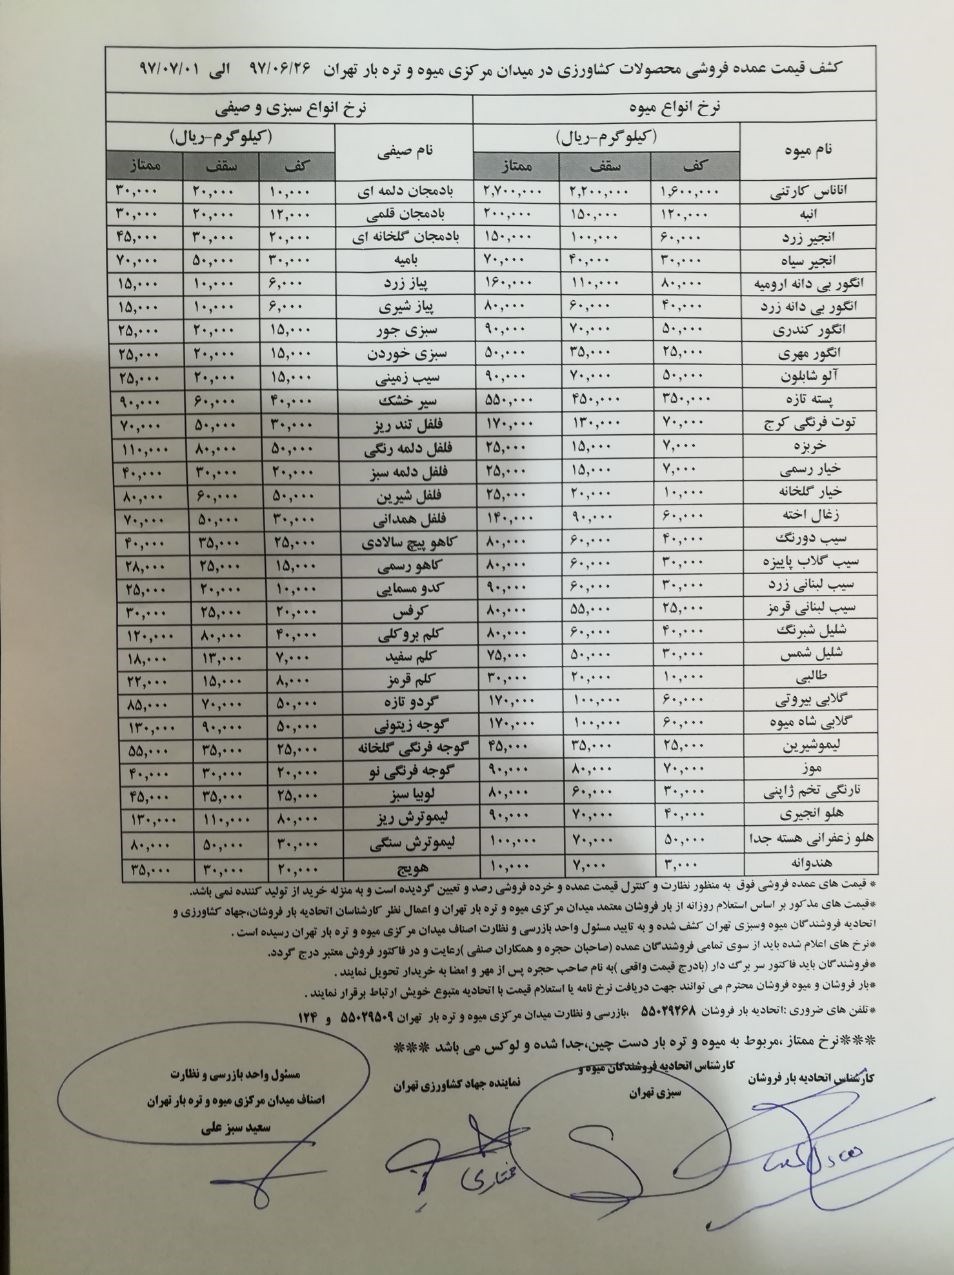 کشف قیمت عمده فروشی محصولات کشاورزی در میدان مرکزی میوه و تره بار تهران ۹۷/۰۶/۲۶ الی ۹۷/۰۷/۰۱
نرخ انواع میوه نرخ انواع سبزی و صیفی
نام میوه (کیلوگرم-ریال) نام صیفی (کیلوگرم-ریال)
کف سقف ممتاز کف سقف ممتاز
اناناس کارتنی ۱,۶۰۰,۰۰۰ ۲,۲۰۰,۰۰۰ ۲,۷۰۰,۰۰۰ بادمجان دلمه ای ۱۰,۰۰۰ ۲۰,۰۰۰ ۳۰,۰۰۰
انبه ۱۲۰,۰۰۰ ۱۵۰,۰۰۰ ۲۰۰,۰۰۰ بادمجان قلمی ۱۲,۰۰۰ ۲۰,۰۰۰ ۳۰,۰۰۰
انجیر زرد ۶۰,۰۰۰ ۱۰۰,۰۰۰ ۱۵۰,۰۰۰ بادمجان گلخانه ای ۲۰,۰۰۰ ۳۰,۰۰۰ ۴۵,۰۰۰
انجیر سیاه ۳۰,۰۰۰ ۴۰,۰۰۰ ۷۰,۰۰۰ بامیه ۳۰,۰۰۰ ۵۰,۰۰۰ ۷۰,۰۰۰
انگور بی دانه ارومیه ۸۰,۰۰۰ ۱۱۰,۰۰۰ ۱۶۰,۰۰۰ پیاز زرد ۶,۰۰۰ ۱۰,۰۰۰ ۱۵,۰۰۰
انگور بی دانه زرد ۴۰,۰۰۰ ۶۰,۰۰۰ ۸۰,۰۰۰ پیاز شیری ۶,۰۰۰ ۱۰,۰۰۰ ۱۵,۰۰۰
انگور کندری ۵۰,۰۰۰ ۷۰,۰۰۰ ۹۰,۰۰۰ سبزی جور ۱۵,۰۰۰ ۲۰,۰۰۰ ۲۵,۰۰۰
انگور مهری ۲۵,۰۰۰ ۳۵,۰۰۰ ۵۰,۰۰۰ سبزی خوردن ۱۵,۰۰۰ ۲۰,۰۰۰ ۲۵,۰۰۰
آلو شابلون ۵۰,۰۰۰ ۷۰,۰۰۰ ۹۰,۰۰۰ سیب زمینی ۱۵,۰۰۰ ۲۰,۰۰۰ ۲۵,۰۰۰
پسته تازه ۳۵۰,۰۰۰ ۴۵۰,۰۰۰ ۵۵۰,۰۰۰ سیر خشک ۴۰,۰۰۰ ۶۰,۰۰۰ ۹۰,۰۰۰
توت فرنگی کرج ۷۰,۰۰۰ ۱۳۰,۰۰۰ ۱۷۰,۰۰۰ فلفل تند ریز ۳۰,۰۰۰ ۵۰,۰۰۰ ۷۰,۰۰۰
خربزه ۷,۰۰۰ ۱۵,۰۰۰ ۲۵,۰۰۰ فلفل دلمه رنگی ۵۰,۰۰۰ ۸۰,۰۰۰ ۱۱۰,۰۰۰
خیار رسمی ۷,۰۰۰ ۱۵,۰۰۰ ۲۵,۰۰۰ فلفل دلمه سبز ۲۰,۰۰۰ ۳۰,۰۰۰ ۴۰,۰۰۰
خیار گلخانه ۱۰,۰۰۰ ۲۰,۰۰۰ ۲۵,۰۰۰ فلفل شیرین ۵۰,۰۰۰ ۶۰,۰۰۰ ۸۰,۰۰۰
زغال اخته ۶۰,۰۰۰ ۹۰,۰۰۰ ۱۴۰,۰۰۰ فلفل همدانی ۳۰,۰۰۰ ۵۰,۰۰۰ ۷۰,۰۰۰
سیب دورنگ ۴۰,۰۰۰ ۶۰,۰۰۰ ۸۰,۰۰۰ کاهو پیچ سالادی ۲۵,۰۰۰ ۳۵,۰۰۰ ۴۰,۰۰۰
سیب گلاب پاییزه ۳۰,۰۰۰ ۶۰,۰۰۰ ۸۰,۰۰۰ کاهو رسمی ۱۵,۰۰۰ ۲۵,۰۰۰ ۲۸,۰۰۰
سیب لبنانی زرد ۳۰,۰۰۰ ۶۰,۰۰۰ ۹۰,۰۰۰ کدو مسمایی ۱۰,۰۰۰ ۲۰,۰۰۰ ۲۵,۰۰۰
سیب لبنانی قرمز ۲۵,۰۰۰ ۵۵,۰۰۰ ۸۰,۰۰۰ کرفس ۲۰,۰۰۰ ۲۵,۰۰۰ ۳۰,۰۰۰
شلیل شبرنگ ۴۰,۰۰۰ ۶۰,۰۰۰ ۸۰,۰۰۰ کلم بروکلی ۴۰,۰۰۰ ۸۰,۰۰۰ ۱۲۰,۰۰۰
شلیل شمس ۳۰,۰۰۰ ۵۰,۰۰۰ ۷۵,۰۰۰ کلم سفید ۷,۰۰۰ ۱۳,۰۰۰ ۱۸,۰۰۰
طالبی ۱۰,۰۰۰ ۲۰,۰۰۰ ۳۰,۰۰۰ کلم قرمز ۸,۰۰۰ ۱۵,۰۰۰ ۲۲,۰۰۰
گلابی بیروتی ۶۰,۰۰۰ ۱۰۰,۰۰۰ ۱۷۰,۰۰۰ گردو تازه ۵۰,۰۰۰ ۷۰,۰۰۰ ۸۵,۰۰۰
گلابی شاه میوه ۶۰,۰۰۰ ۱۰۰,۰۰۰ ۱۷۰,۰۰۰ گوجه زیتونی ۵۰,۰۰۰ ۹۰,۰۰۰ ۱۳۰,۰۰۰
لیموشیرین ۲۵,۰۰۰ ۳۵,۰۰۰ ۴۵,۰۰۰ گوجه فرنگی گلخانه ۲۵,۰۰۰ ۳۵,۰۰۰ ۵۵,۰۰۰
موز ۷۰,۰۰۰ ۸۰,۰۰۰ ۹۰,۰۰۰ گوجه فرنگی نو ۲۰,۰۰۰ ۳۰,۰۰۰ ۴۰,۰۰۰
نارنگی تخم ژاپنی ۳۰,۰۰۰ ۶۰,۰۰۰ ۸۰,۰۰۰ لوبیا سبز ۲۵,۰۰۰ ۳۵,۰۰۰ ۴۵,۰۰۰
هلو انجیری ۴۰,۰۰۰ ۷۰,۰۰۰ ۹۰,۰۰۰ لیموترش ریز ۸۰,۰۰۰ ۱۱۰,۰۰۰ ۱۳۰,۰۰۰
هلو زعفرانی هسته جدا ۵۰,۰۰۰ ۷۰,۰۰۰ ۱۰۰,۰۰۰ لیموترش سنگی ۳۰,۰۰۰ ۵۰,۰۰۰ ۸۰,۰۰۰
هندوانه ۳,۰۰۰ ۷,۰۰۰ ۱۰,۰۰۰ هویج ۲۰,۰۰۰ ۳۰,۰۰۰ ۳۵,۰۰۰
* قیمت های عمده فروشی فوق به منظور نظارت و کنترل قیمت عمده و خرده فروشی رصد و تعیین گردیده است و به منزله خرید از تولید کننده نمی باشد.
*قیمت های مذکور بر اساس استعلام روزانه از بار فروشان معتمد میدان مرکزی میوه و تره بار تهران و اعمال نظر کارشناسان اتحادیه بار فروشان،جهاد کشاورزی و
اتحادیه فروشندگان میوه وسبزی تهران کشف شده و به تایید مسئول واحد بازرسی و نظارت اصناف میدان مرکزی میوه و تره بار تهران رسیده است .
*نرخ های اعلام شده باید از سوی تمامی فروشندگان عمده (صاحبان حجره و همکاران صنفی )رعایت و در فاکتور فروش معتبر درج گردد.
*فروشندگان باید فاکتور سر برگ دار (بادرج قیمت واقعی )به نام صاحب حجره پس از مهر و امضا به خریدار تحویل نمایند .
*بار فروشان و میوه فروشان محترم می توانند جهت دریافت نرخ نامه یا استعلام قیمت با اتحادیه متبوع خویش ارتباط برقرار نمایند .
*تلفن های ضروری :اتحادیه بار فروشان ۵۵۰۲۹۲۶۸ ،بازرسی و نظارت میدان مرکزی میوه و تره بار تهران ۵۵۰۲۹۵۰۹ و ۱۲۴
***نرخ ممتاز ،مربوط به میوه و تره بار دست چین،جدا شده و لوکس می باشد ***
کارشناس اتحادیه بار فروشان
کارشناس اتحادیه فروشندگان میوه و
سبزی تهران
نماینده جهاد کشاورزی تهران
مختاری
مسئول واحد بازرسی و نظارت
اصناف میدان مرکزی میوه و تره بار تهران
سعید سبز علی